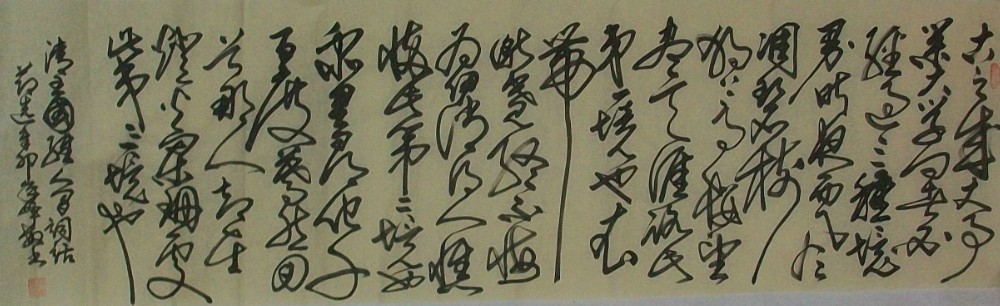 古之成大事
業大學問者必
經過三種境
界昨夜西風
凋碧樹
獨上高樓望
盡天涯路此
第一境也衣
帶
漸寬終不悔
為伊消得人憔
悴此第二境也
眾里尋他千
百度驀然回
首那人卻在
燈火闌珊處
此第三境也
清王國維人間詞話
節選辛卯